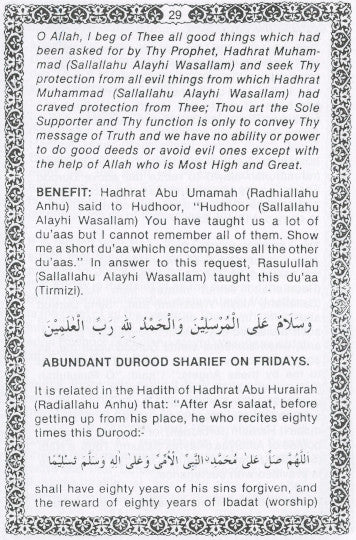 29
O Allah, I beg of Thee all good things which had
been asked for by Thy Prophet, Hadhrat Muham-
mad (Sallallahu Alayhi Wasallam) and seek Thy
protection from all evil things from which Hadhrat
Muhammad (Sallallahu Alayhi Wasallam) had
craved protection from Thee; Thou art the Sole
Supporter and Thy function is only to convey Thy
message of Truth and we have no ability or power
to do good deeds or avoid evil ones except with
the help of Allah who is Most High and Great.
BENEFIT: Hadhrat Abu Umamah (Radhiallahu
Anhu) said to Hudhoor, "Hudhoor (Sallallahu
Alayhi Wasallam) You have taught us a lot of
du'aas but I cannot remember all of them. Show
me a short du'aa which encompasses all the other
du'aas." In answer to this request, Rasulullah
(Sallallahu Alayhi Wasallam) taught this du'aa
(Tirmizi).
وَسَلَامٌ عَلَى الْمُرْسَلِيْنَ وَالْحَمْدُ لِلّٰهِ رَبِّ الْعٰلَمِيْنَ
ABUNDANT DUROOD SHARIEF ON FRIDAYS.
It is related in the Hadith of Hadhrat Abu Hurairah
(Radiallahu Anhu) that: "After Asr salaat, before
getting up from his place, he who recites eighty
times this Durood:-
اللّٰهُمَّ صَلِّ عَلٰى مُحَمَّدِ ࣙالنَّبِىِّ الْاُمِّىِّ وَعَلٰى اٰلِهٖ وَسَلِّمْ تَسْلِيْمًا
shall have eighty years of his sins forgiven, and
the reward of eighty years of Ibadat (worship)